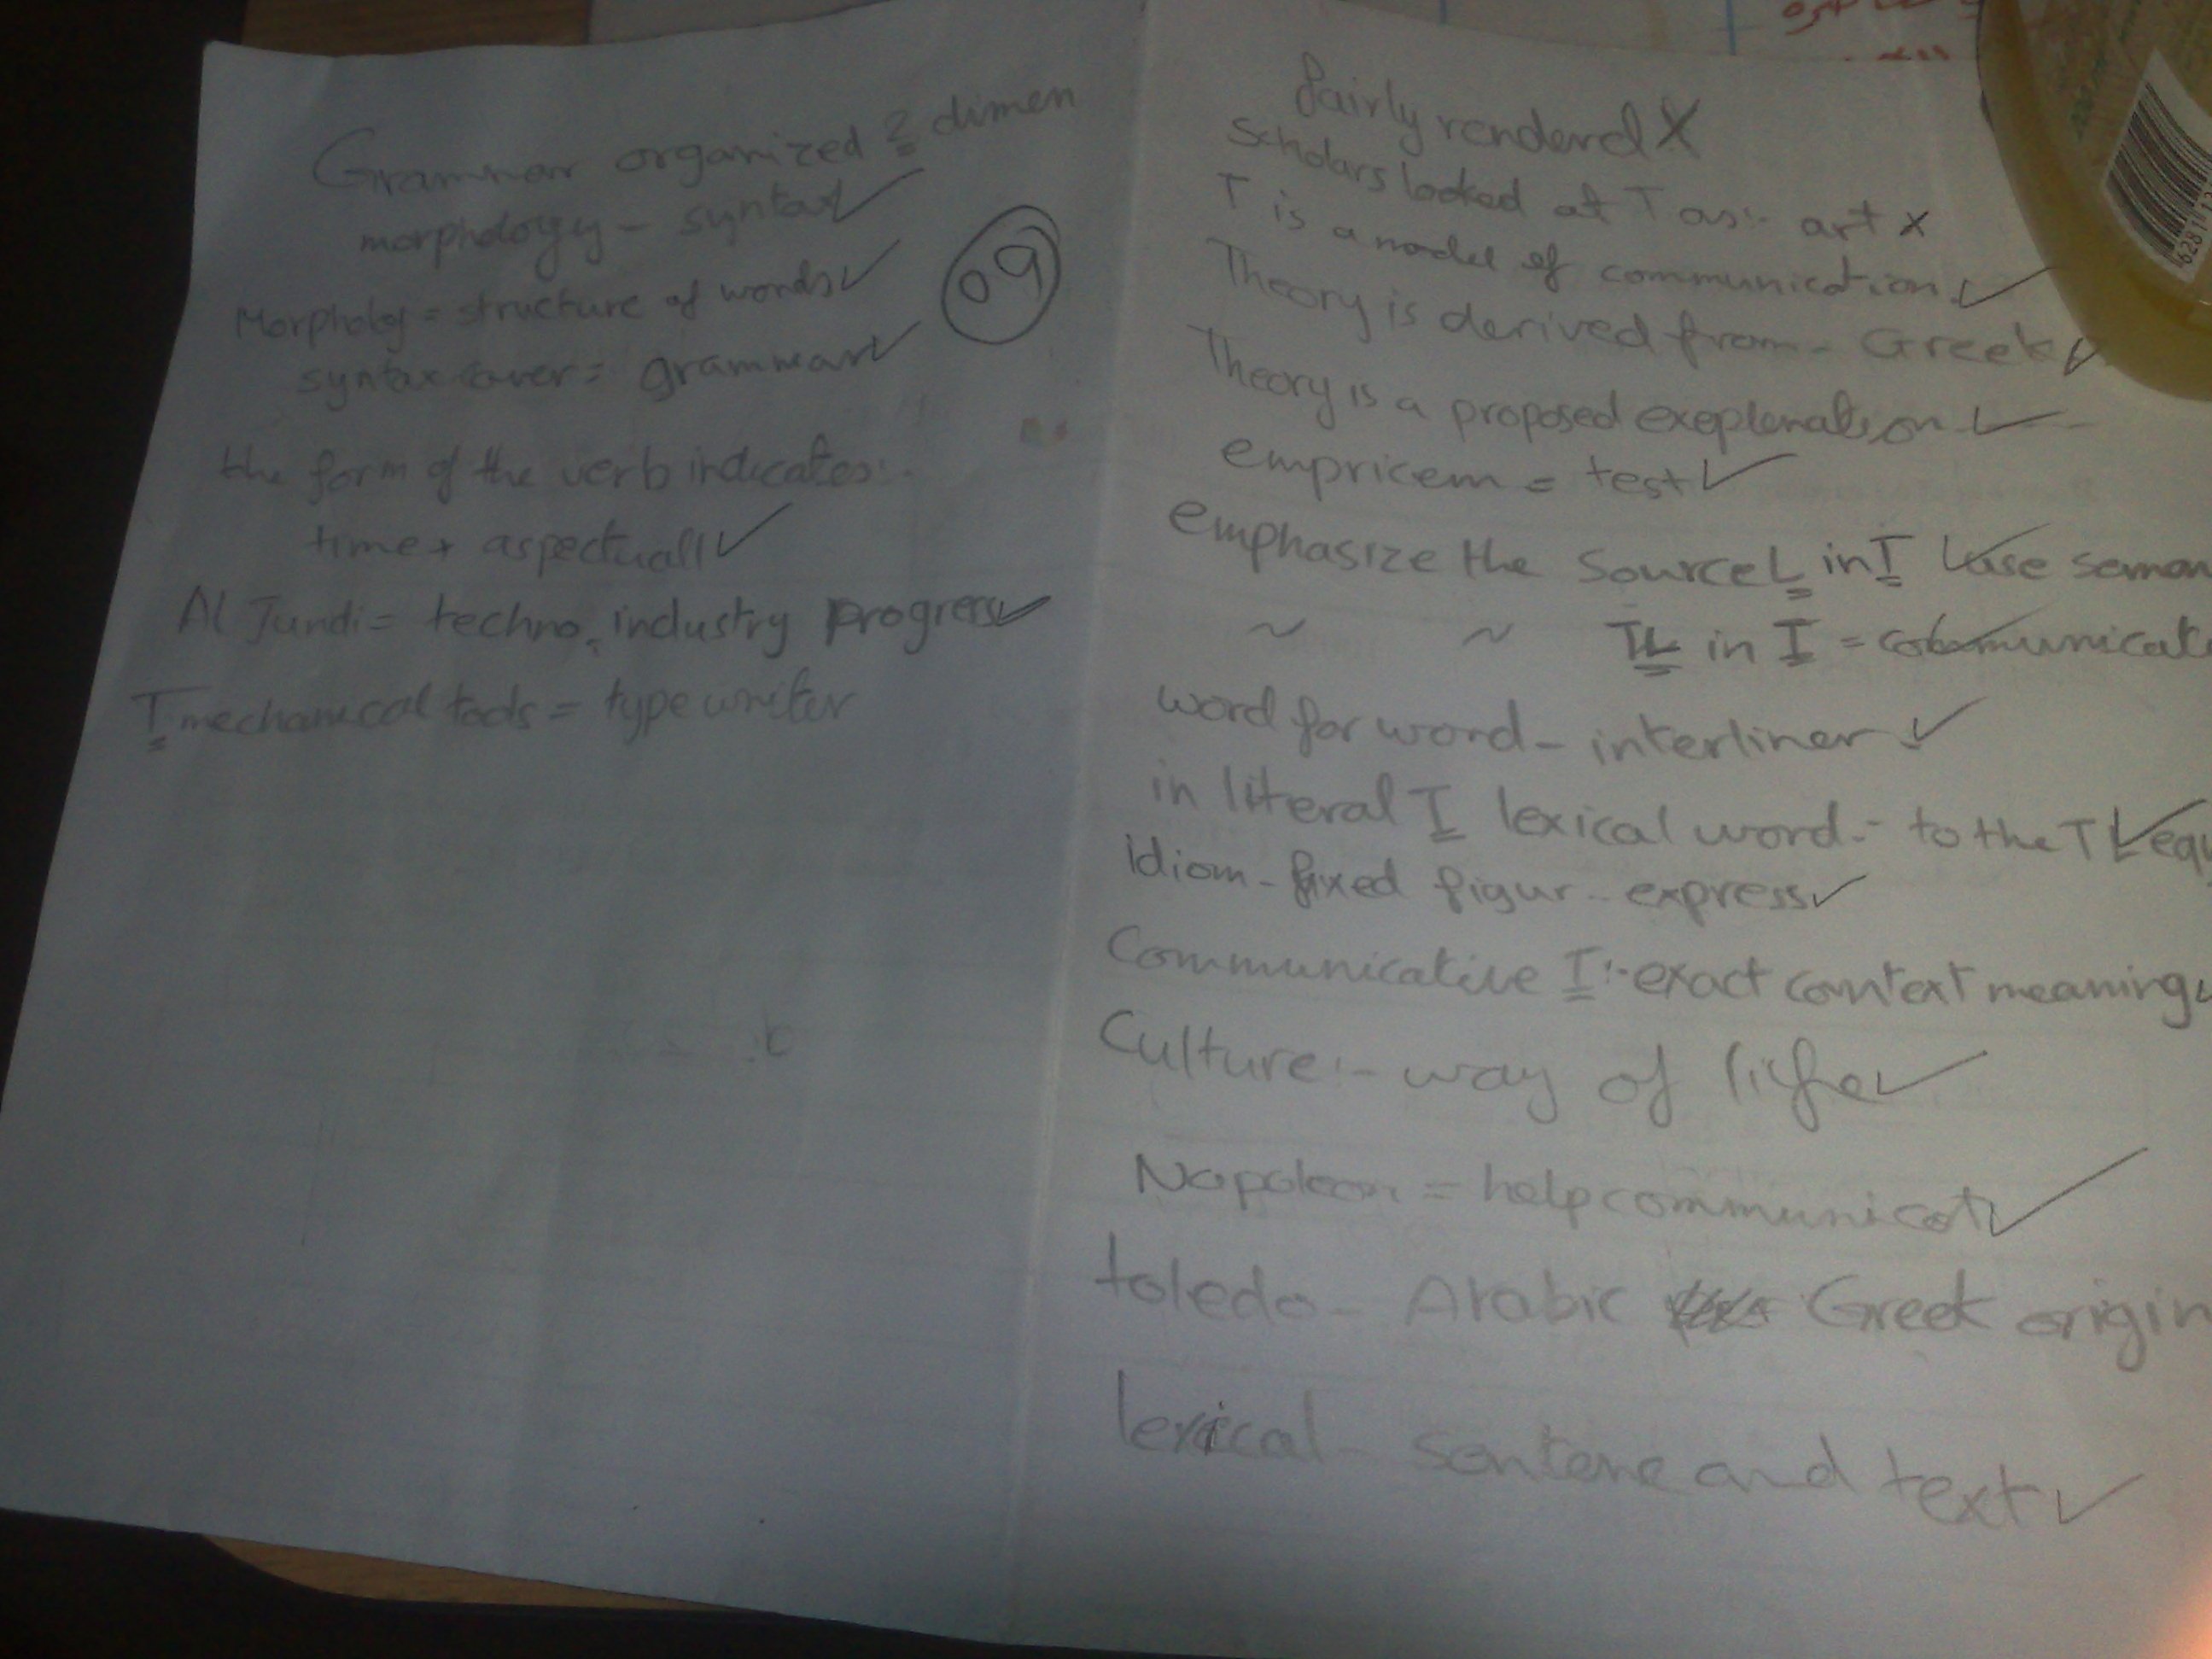 Grammar organized 2 dimen
morphology - syntax ✓
Morpholog = structure of words ✓
syntax cover = grammar ✓
09
the form of the verb indicates:-
time + aspectuall ✓
Al Jundi = techno, industry progress ✓
T mechanical tools = type writer
fairly renderd X
Scholars looked at T as:- art x
T is a model of communication ✓
Theory is derived from - Greek ✓
Theory is a proposed exeplanation ✓
empricem = test ✓
emphasize the Source L in T use seman
~ ~ TL in T = communicat
word for word - interliner ✓
in literal T lexical word - to the TL equ
idiom - fixed figur - express ✓
Communicative T :- exact context meaning
Culture :- way of life ✓
Napoleon = help communicat ✓
toledo - Arabic Greek origin
lexical - sentene and text ✓
6281